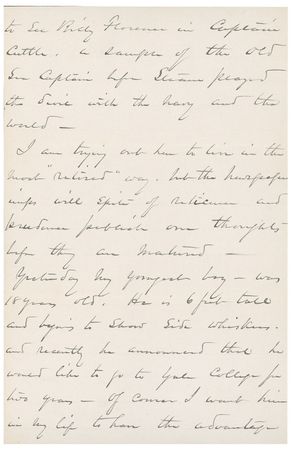 to see Billy Florence in Captain
Cuttle. a sample of the old
Sea Captain before Steam played
the devil with the Navy and the
world —
I am trying out here to live in the
most "retired" way. but the newspaper
imps will spite of reticence and
prudence publish one thoughts
before they are matured —
Yesterday My youngest boy — was
18 years old. He is 6 feet tall
and begins to show side whiskers.
and recently he announced that he
would like to go to Yale College for
two years — Of course I want him
in my life to have the advantage